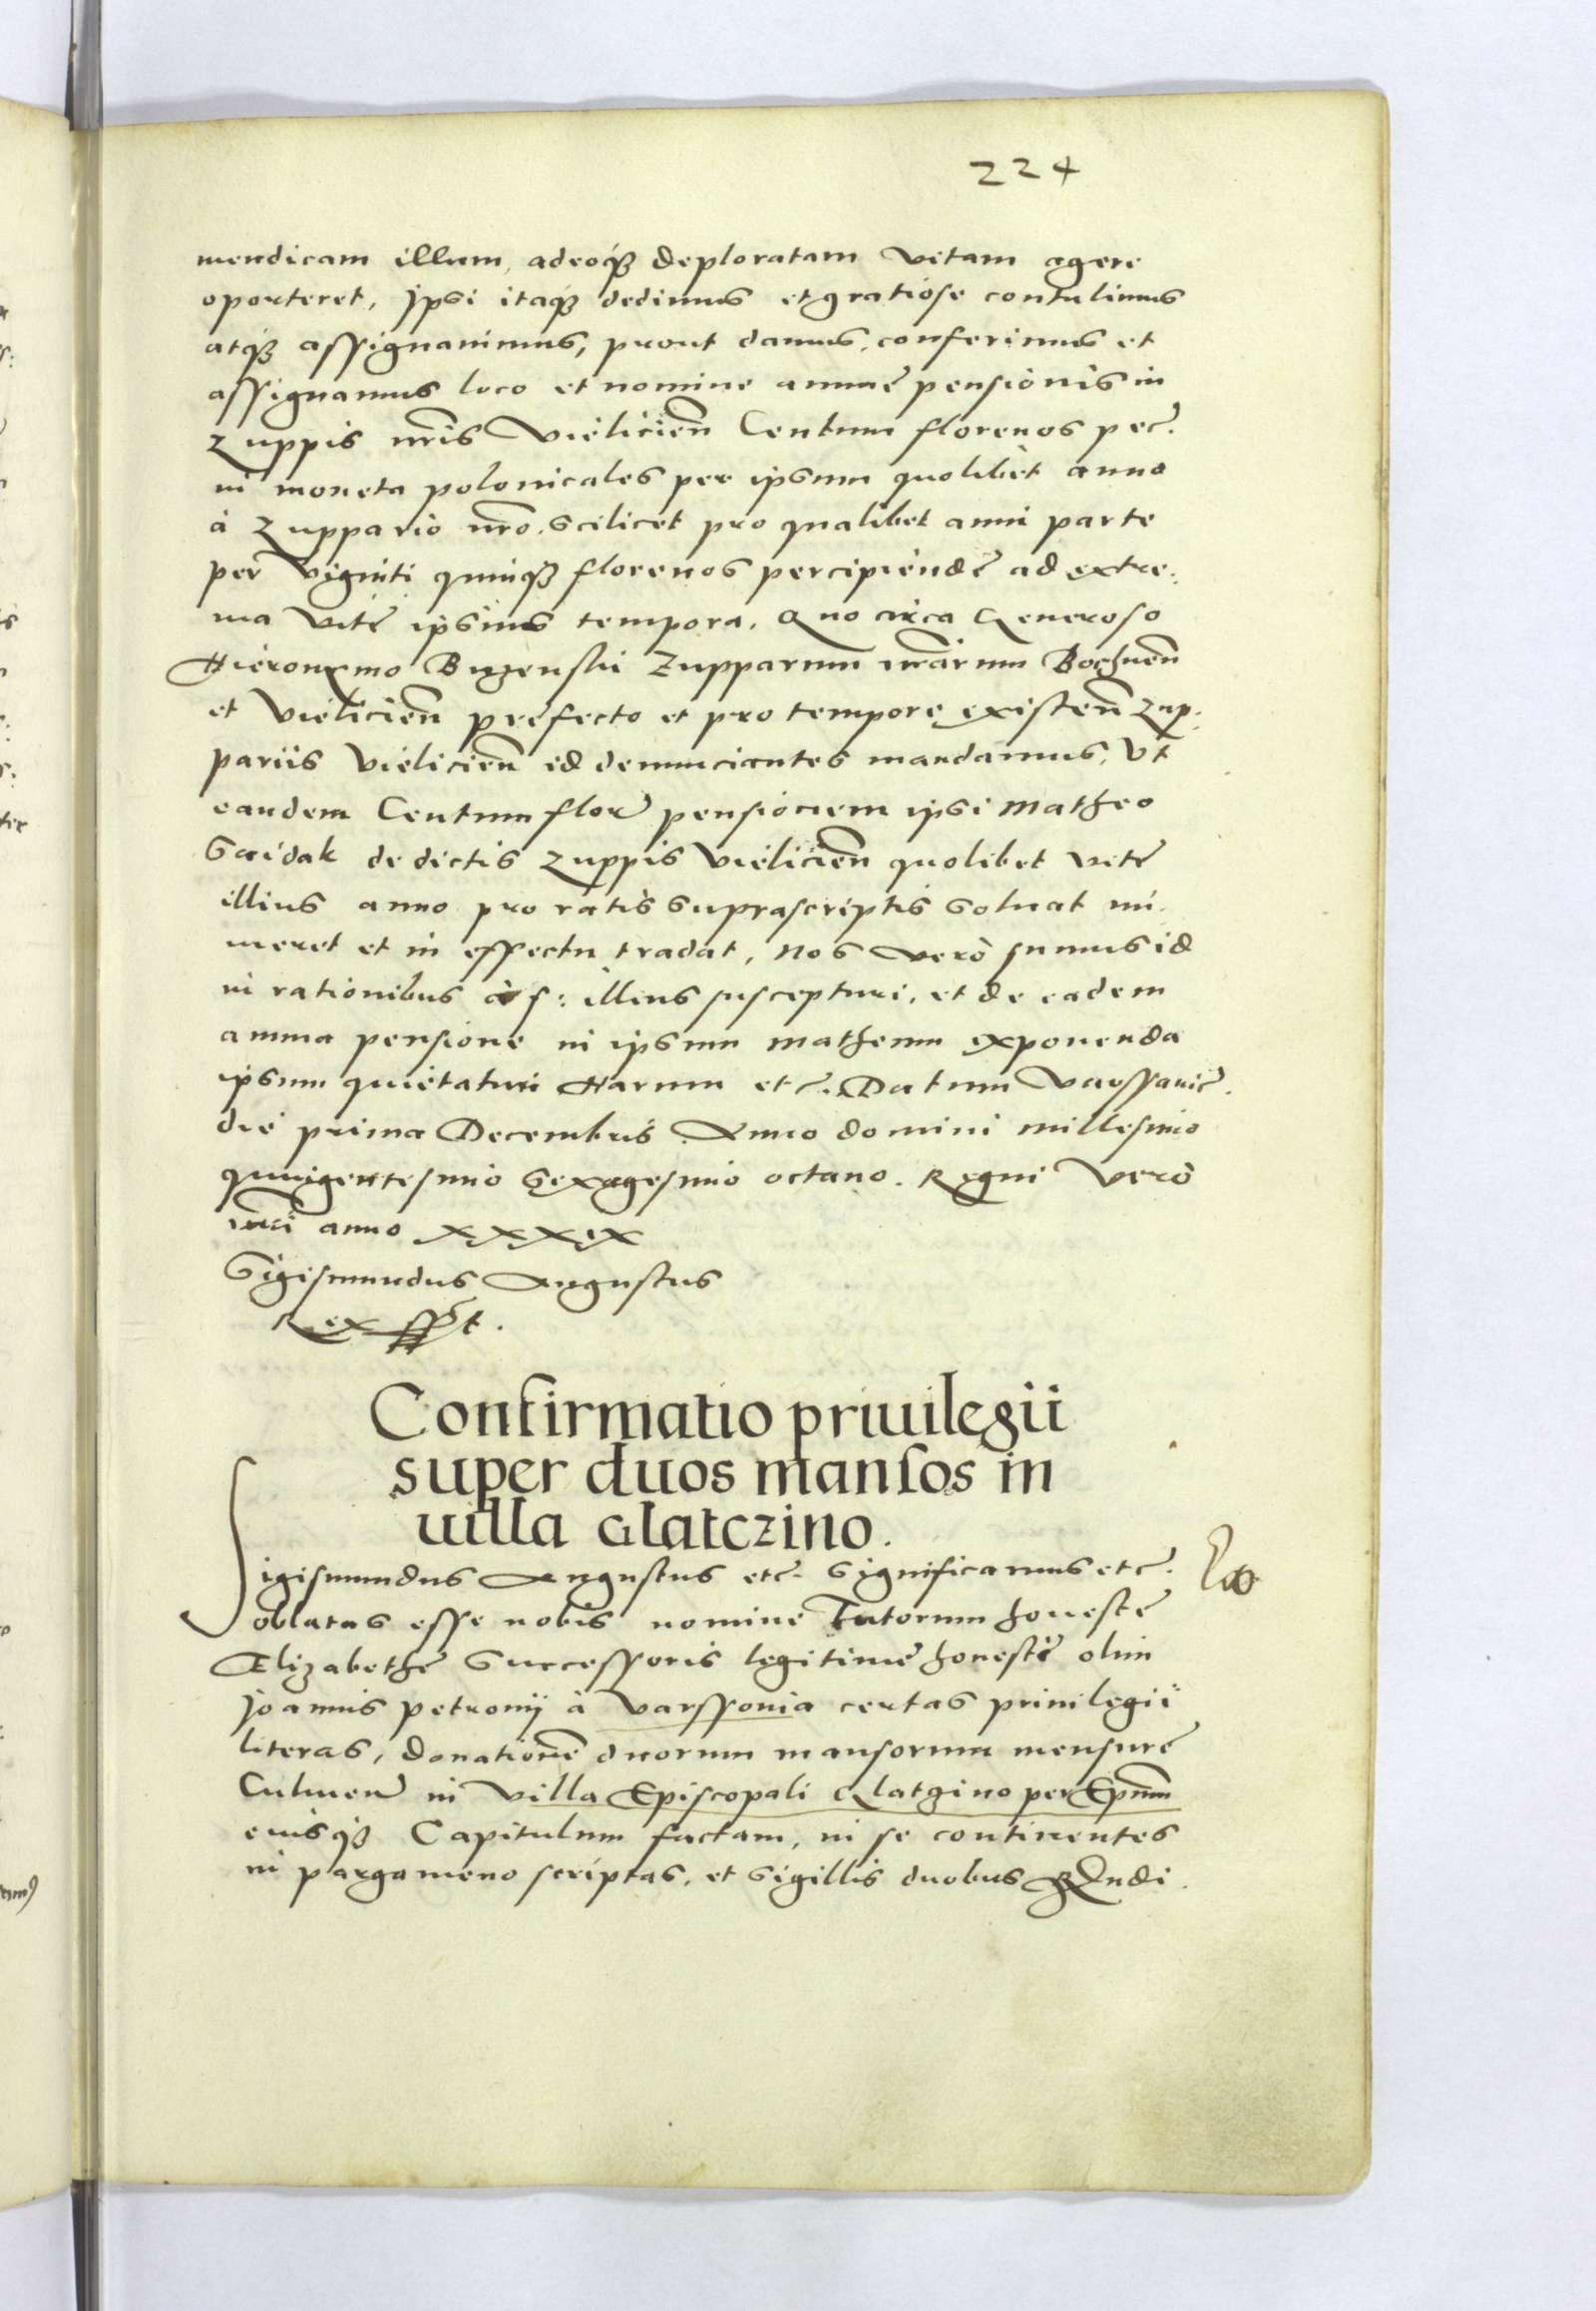 224
mendicam illum, adeoq₃ deploratam vitam agere
oporteret, Jpsi itaq₃ dedimus et gratiose contulimus
atq₃ assignauimus, prout damus, conferimus et
assignamus loco et nomine annuę pensionis in
Zuppis nris Vielicien Centum florenos pec.
in moneta polonicales per ipsum quolibet anno
à Zuppario nro. scilicet pro qualibet anni parte
per viginti quinq₃ florenos percipiendę ad extre:
ma vitę ipsius tempora. Quo circa Generoso
Hieronymo Buzenski Zupparum nrarum Bochnen
et Vielicien pręfecto et pro tempore existen Zup:
pariis Vielicien id denunciantes mandamus, vt
eandem Centum flor pensionem ipsi Matheo
de dictis Zuppis Vielicien quolibet vitę
illius anno pro ratis suprascriptis soluat nu.
meret et in effectu tradat, Nos vero sumus id
in rationibus à f: illius suscepturi, et de eadem
annua pensione in ipsum Matheum exponenda
ipsum quietaturi Harum etc. Datum Varssauię.
die prima Decembris Anno domini millesimo
quingentesimo sexagesimo octauo. Regni vero
nri anno XXXIX
Sigismundus Augustus
Rex sst.
Confirmatio priuilegii
super duos mansos in
uilla Glatczino.
Sigismundus Augustus etc. significamus etc.
oblatas esse nobis nomine Tutorum honestę
Elizabethę Successoris legitimę honesti olim
Joannis Petronij à Varssouia certas priuilegii
literas, donationē duorum mansorum mensurę
Culmen in villa Episcopali Glatzino per Epum
eiusq₃ Capitulum factam, in se continentes
in pargameno scriptas, et sigillis duobus